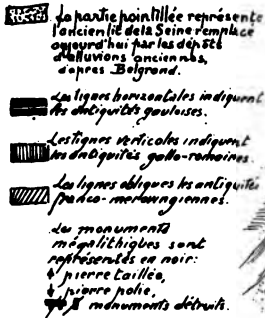 La partie pointillée représente
l'ancien lit de la Seine remplacé
aujourd'hui par les dépôts
d'alluvions anciennes,
d'après Belgrand.
Les lignes horizontales indiquent
les antiquités gauloises.
Les lignes verticales indiquent
les antiquités gallo-romaines.
Les lignes obliques les antiquités
franco-merovingiennes.
Les monuments
mégalithiques sont
représentés en noir:
pierre taillée,
pierre polie,
monuments détruits.